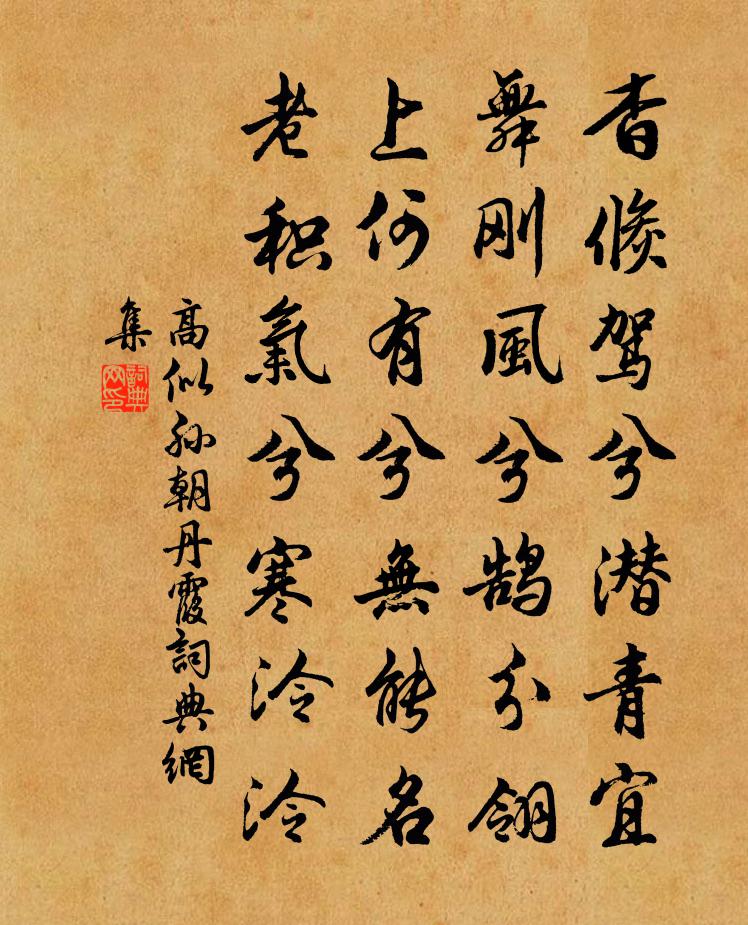 杳倏驾兮潜青宜
舞刚風兮鹄分翎
上何有兮無能名
老积氣兮寒泠泠
高似孙朝丹霞詞典網
集
詞典
网印